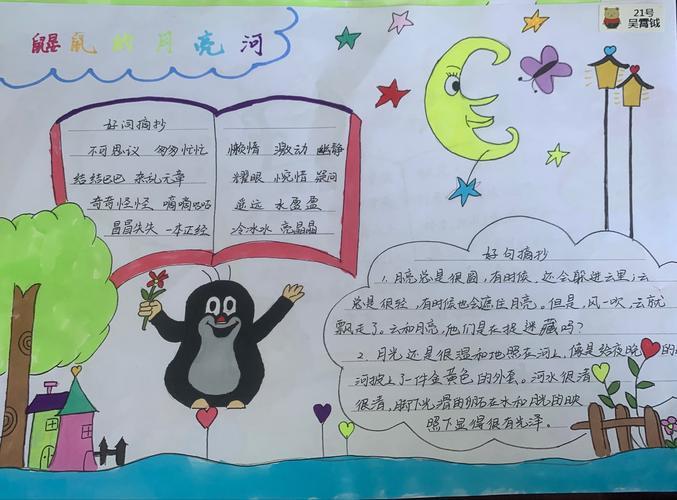 鼹鼠的月亮河
21号
好词摘抄
不可思议 匆匆忙忙
结结巴巴 杂乱无章
奇奇怪怪 嘀嘀咕咕
冒冒失失 一本正经
懒惰 激动 幽静
耀眼 惋惜 疑问
遥远 水盈盈
冷冰冰 亮晶晶
好句摘抄
1.月亮总是很圆,有时候,还会躲进云里;云
总是很轻,有时候也会遮住月亮。但是,风一吹,云就
飘走了。云和月亮,他们是在捉迷藏吗?
2.月光还是很温和地照在河上,像是给夜晚的
河披上了一件金黄色的外套。河水很清
很清,脚下光滑的卵石在水和月光的映
照下显得很有光泽。